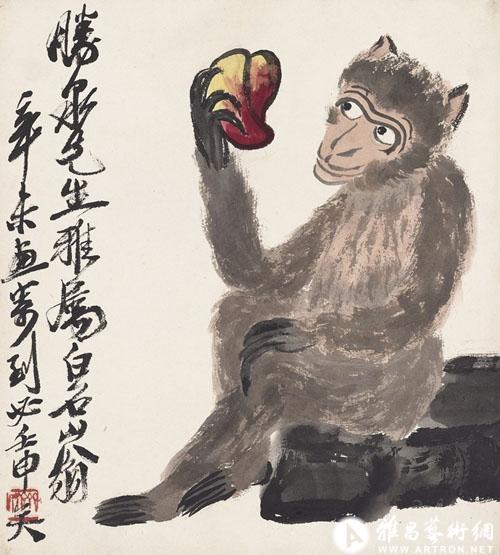 勝泉先生雅屬白石山翁
辛未畫寄到必壬申矣
雅昌藝術網
WWW.ARTRON.NET